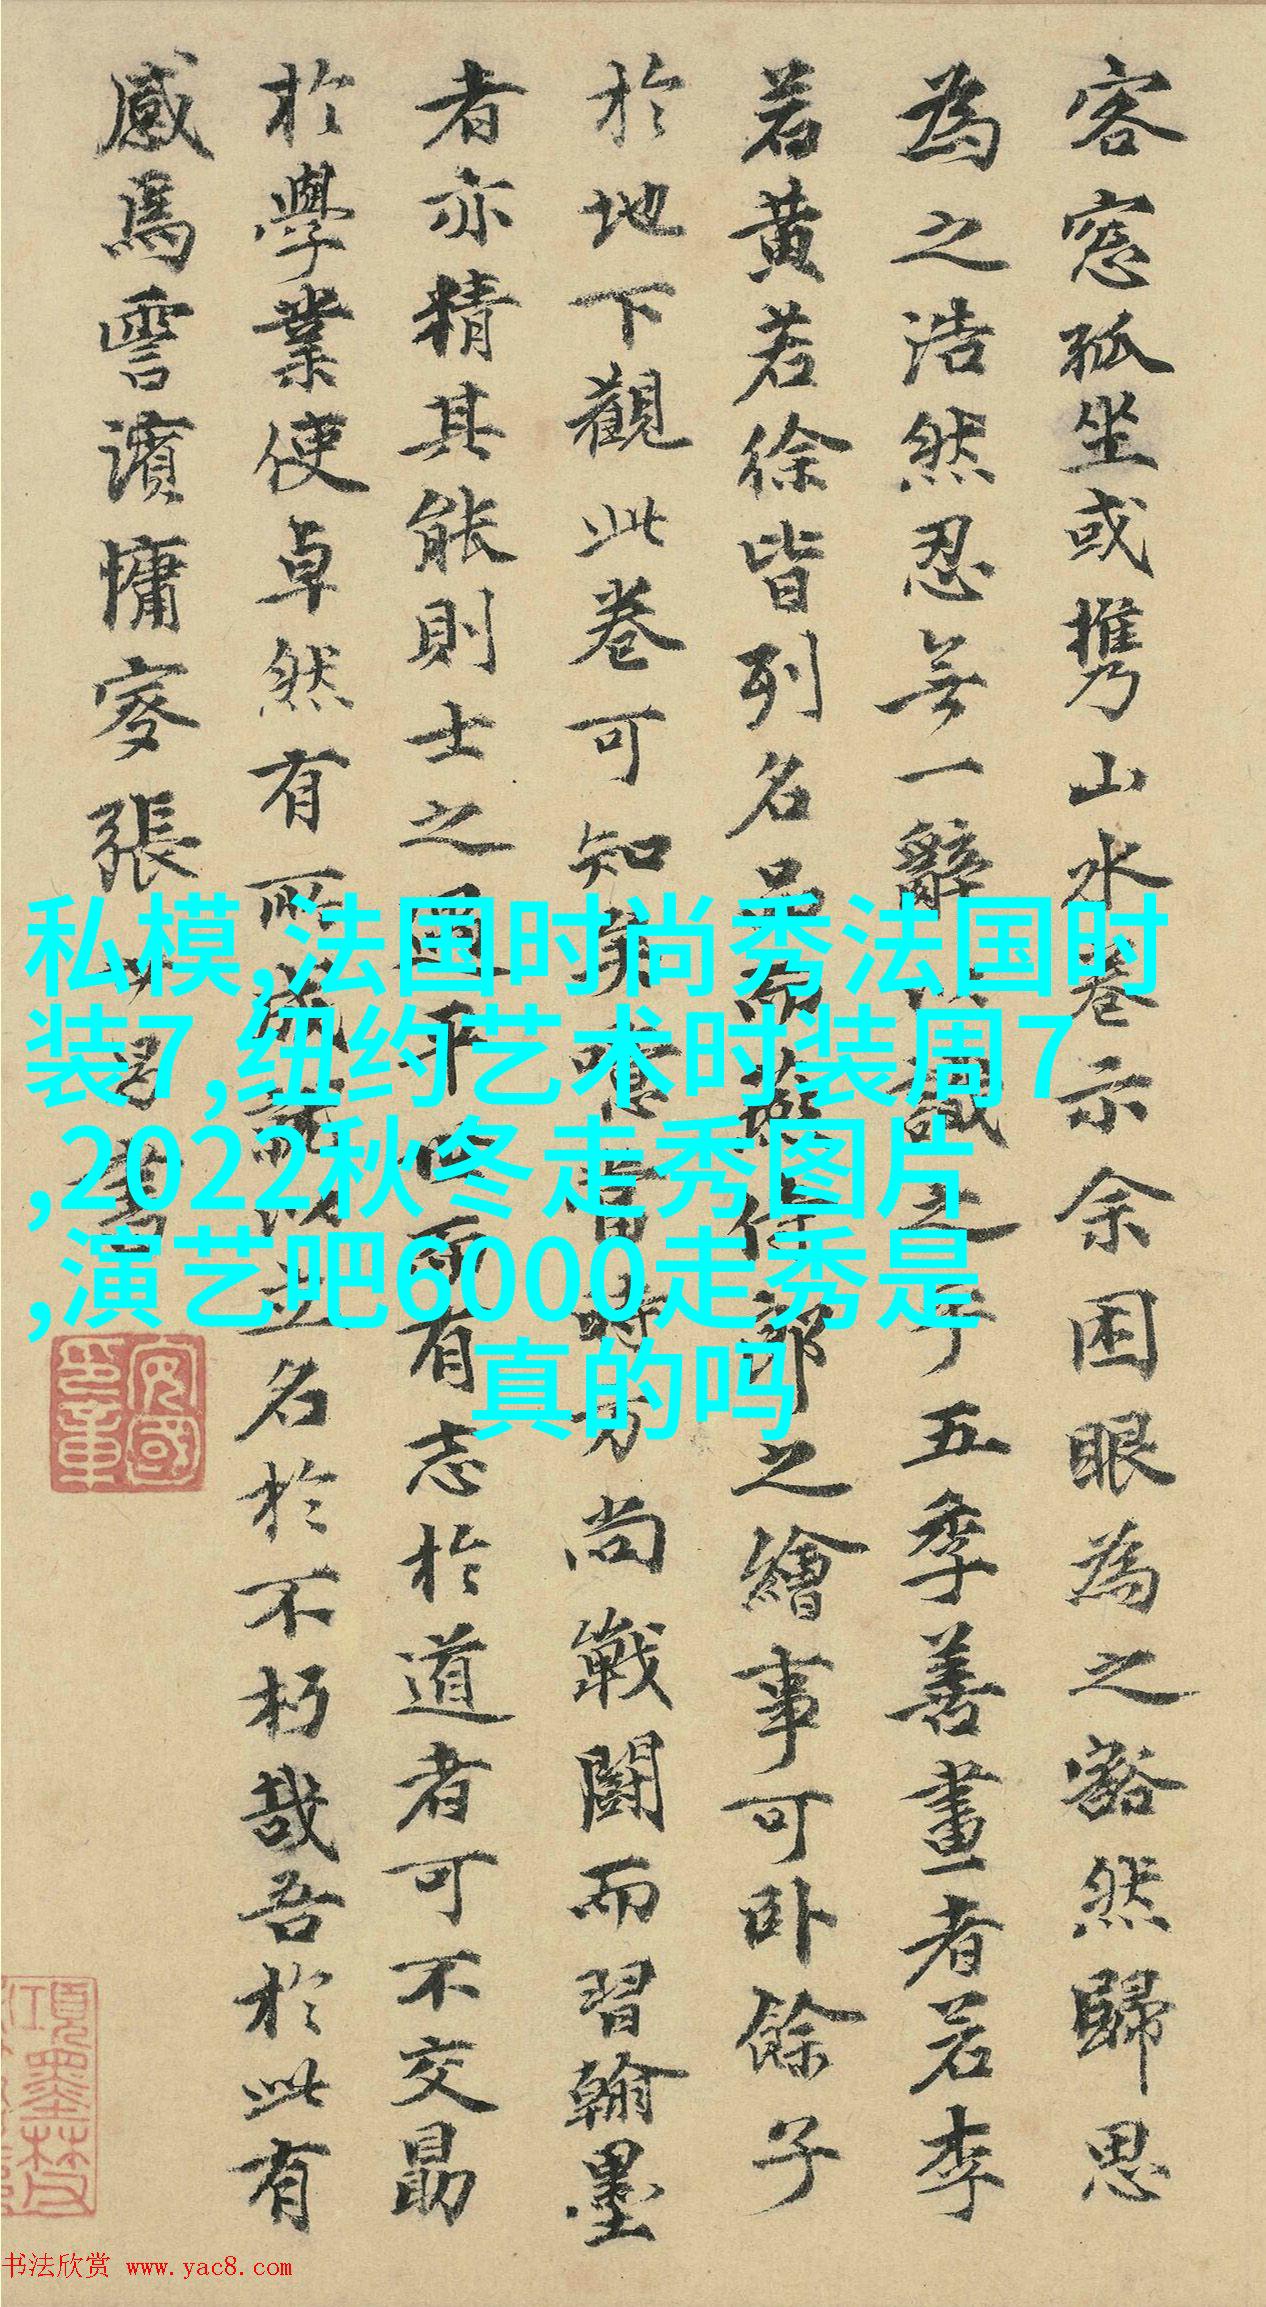 客窓孤坐或携山水卷示余困眼為之豁然歸思
為之浩然忍無一辭以識之乎五季善畫者若李
若黄若徐皆列名品而燕侍郎之繪事可卧餘子
於地下觀此卷可知矣噫當時方尚戰鬪而習翰墨
者亦精其能則士之生平心所有志於道者可不交勗
於學業使卓然有所成就以立名於不朽哉吾於此有
感焉雩濱慵叟張
私模,法国时尚秀法国时
装7,纽约艺术时装周7
,2022秋冬走秀图片
,演艺吧6000走秀是
真的吗
书法欣赏 www.yac8.com